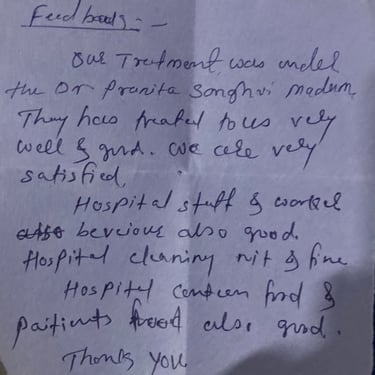 Feedbacks:-
Our Treatment, was under
the Dr Pranita Songhvi madum.
They has treated to us very
well & good. we are very
satisfied.
Hospital staff & worker
bevcious also good.
Hospital cleaning nit & fine
Hospital centeen food &
paitients food also good.
Thanks you